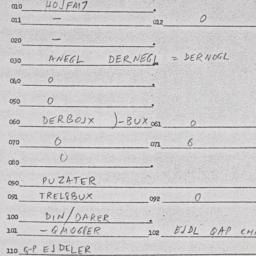 010 HOJFM7
011 - 012 0
020 -
030 ANEGL DERNEGL = DERNOGL
040 0
050 0
060 DERBOJX )-BUX 061 0
070 0 071 6
080 0
090 PUZATER
091 TRELGBUX 092 0
100 DIN/DARER
101 -GMOGGER 102 EJDL GAP
110 G-P EJDELER